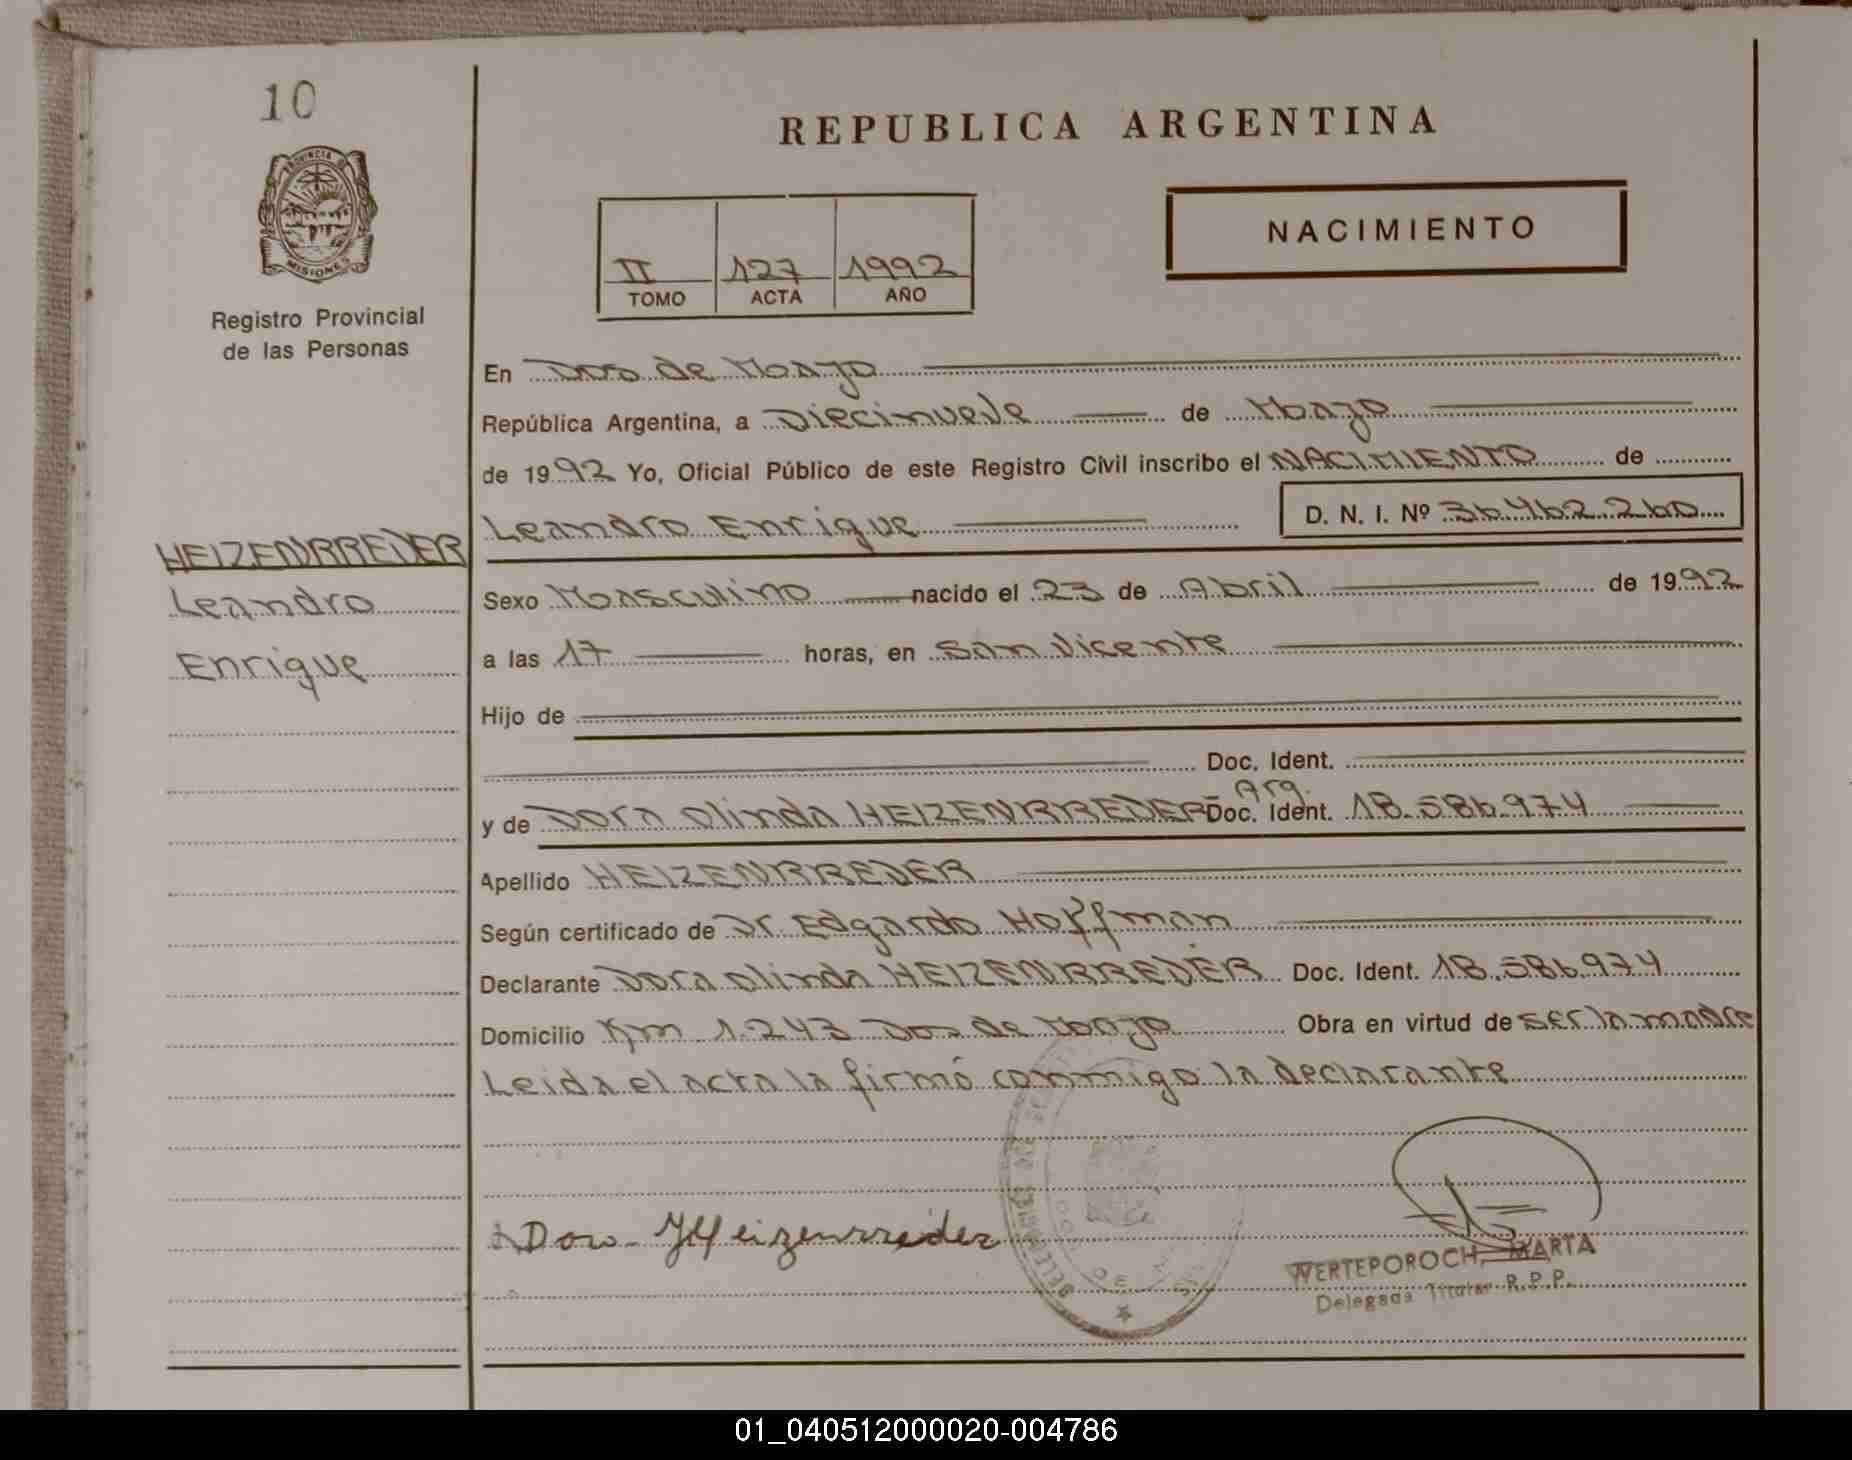 10
PROVINCIA DE
MISIONES
Registro Provincial
de las Personas
REPUBLICA ARGENTINA
NACIMIENTO
II 127 1992
TOMO ACTA AÑO
En Dos de Mayo
República Argentina, a Diecinueve de Mayo
de 1992 Yo, Oficial Público de este Registro Civil inscribo el NACIMIENTO de
Leandro Enrique D. N. I. Nº 36.462.260
HEIZENRREDER
Leandro
Enrique
Sexo Masculino nacido el 23 de Abril de 1992
a las 17 horas, en San Vicente
Hijo de
Doc. Ident.
Arg.
y de Dora Olinda HEIZENRREDER Doc. Ident. 18.586.974
Apellido HEIZENRREDER
Según certificado de Dr. Edgardo Hoffman
Declarante Dora Olinda HEIZENRREDER Doc. Ident. 18.586.974
Domicilio Km 1.243 Dos de Mayo Obra en virtud de ser la madre
Leida el acta la firmó conmigo la declarante
Heizenrreider
WERTEPOROCH, MARTA
Delegada Titular R.P.P.
01_040512000020-004786